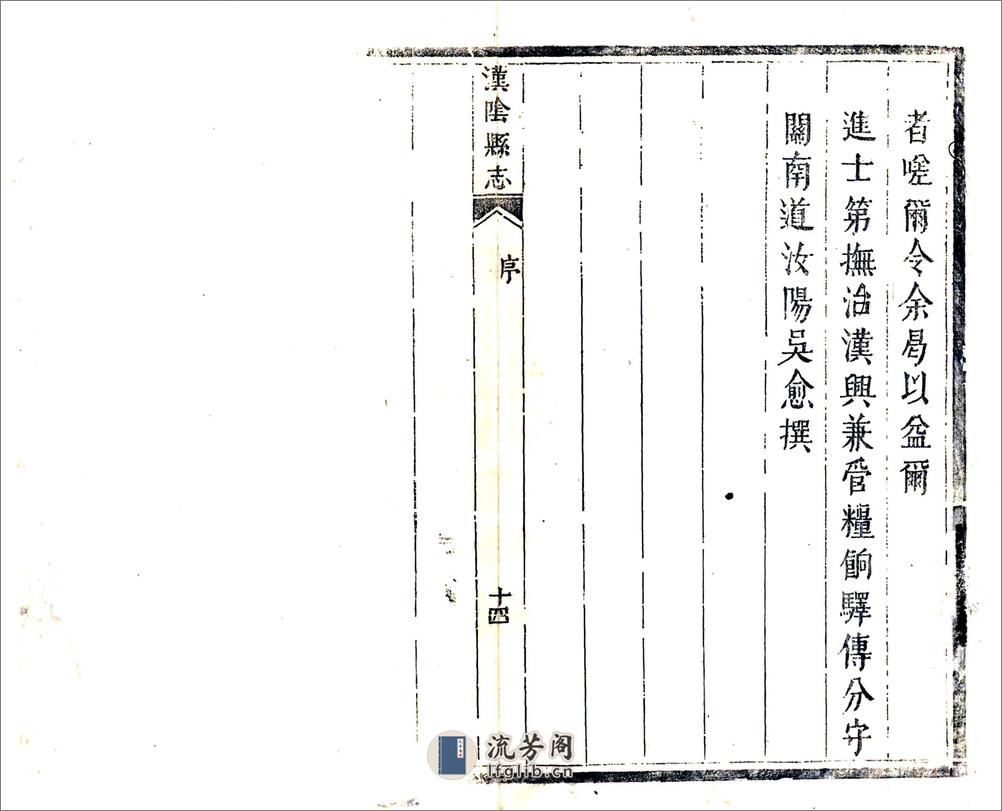 者嗟爾令余曷以益爾
進士第撫治漢興兼管糧餉驛傳分守
關南道汝陽吳愈撰
漢陰縣志
序
十四
流芳阁
lfglib.cn